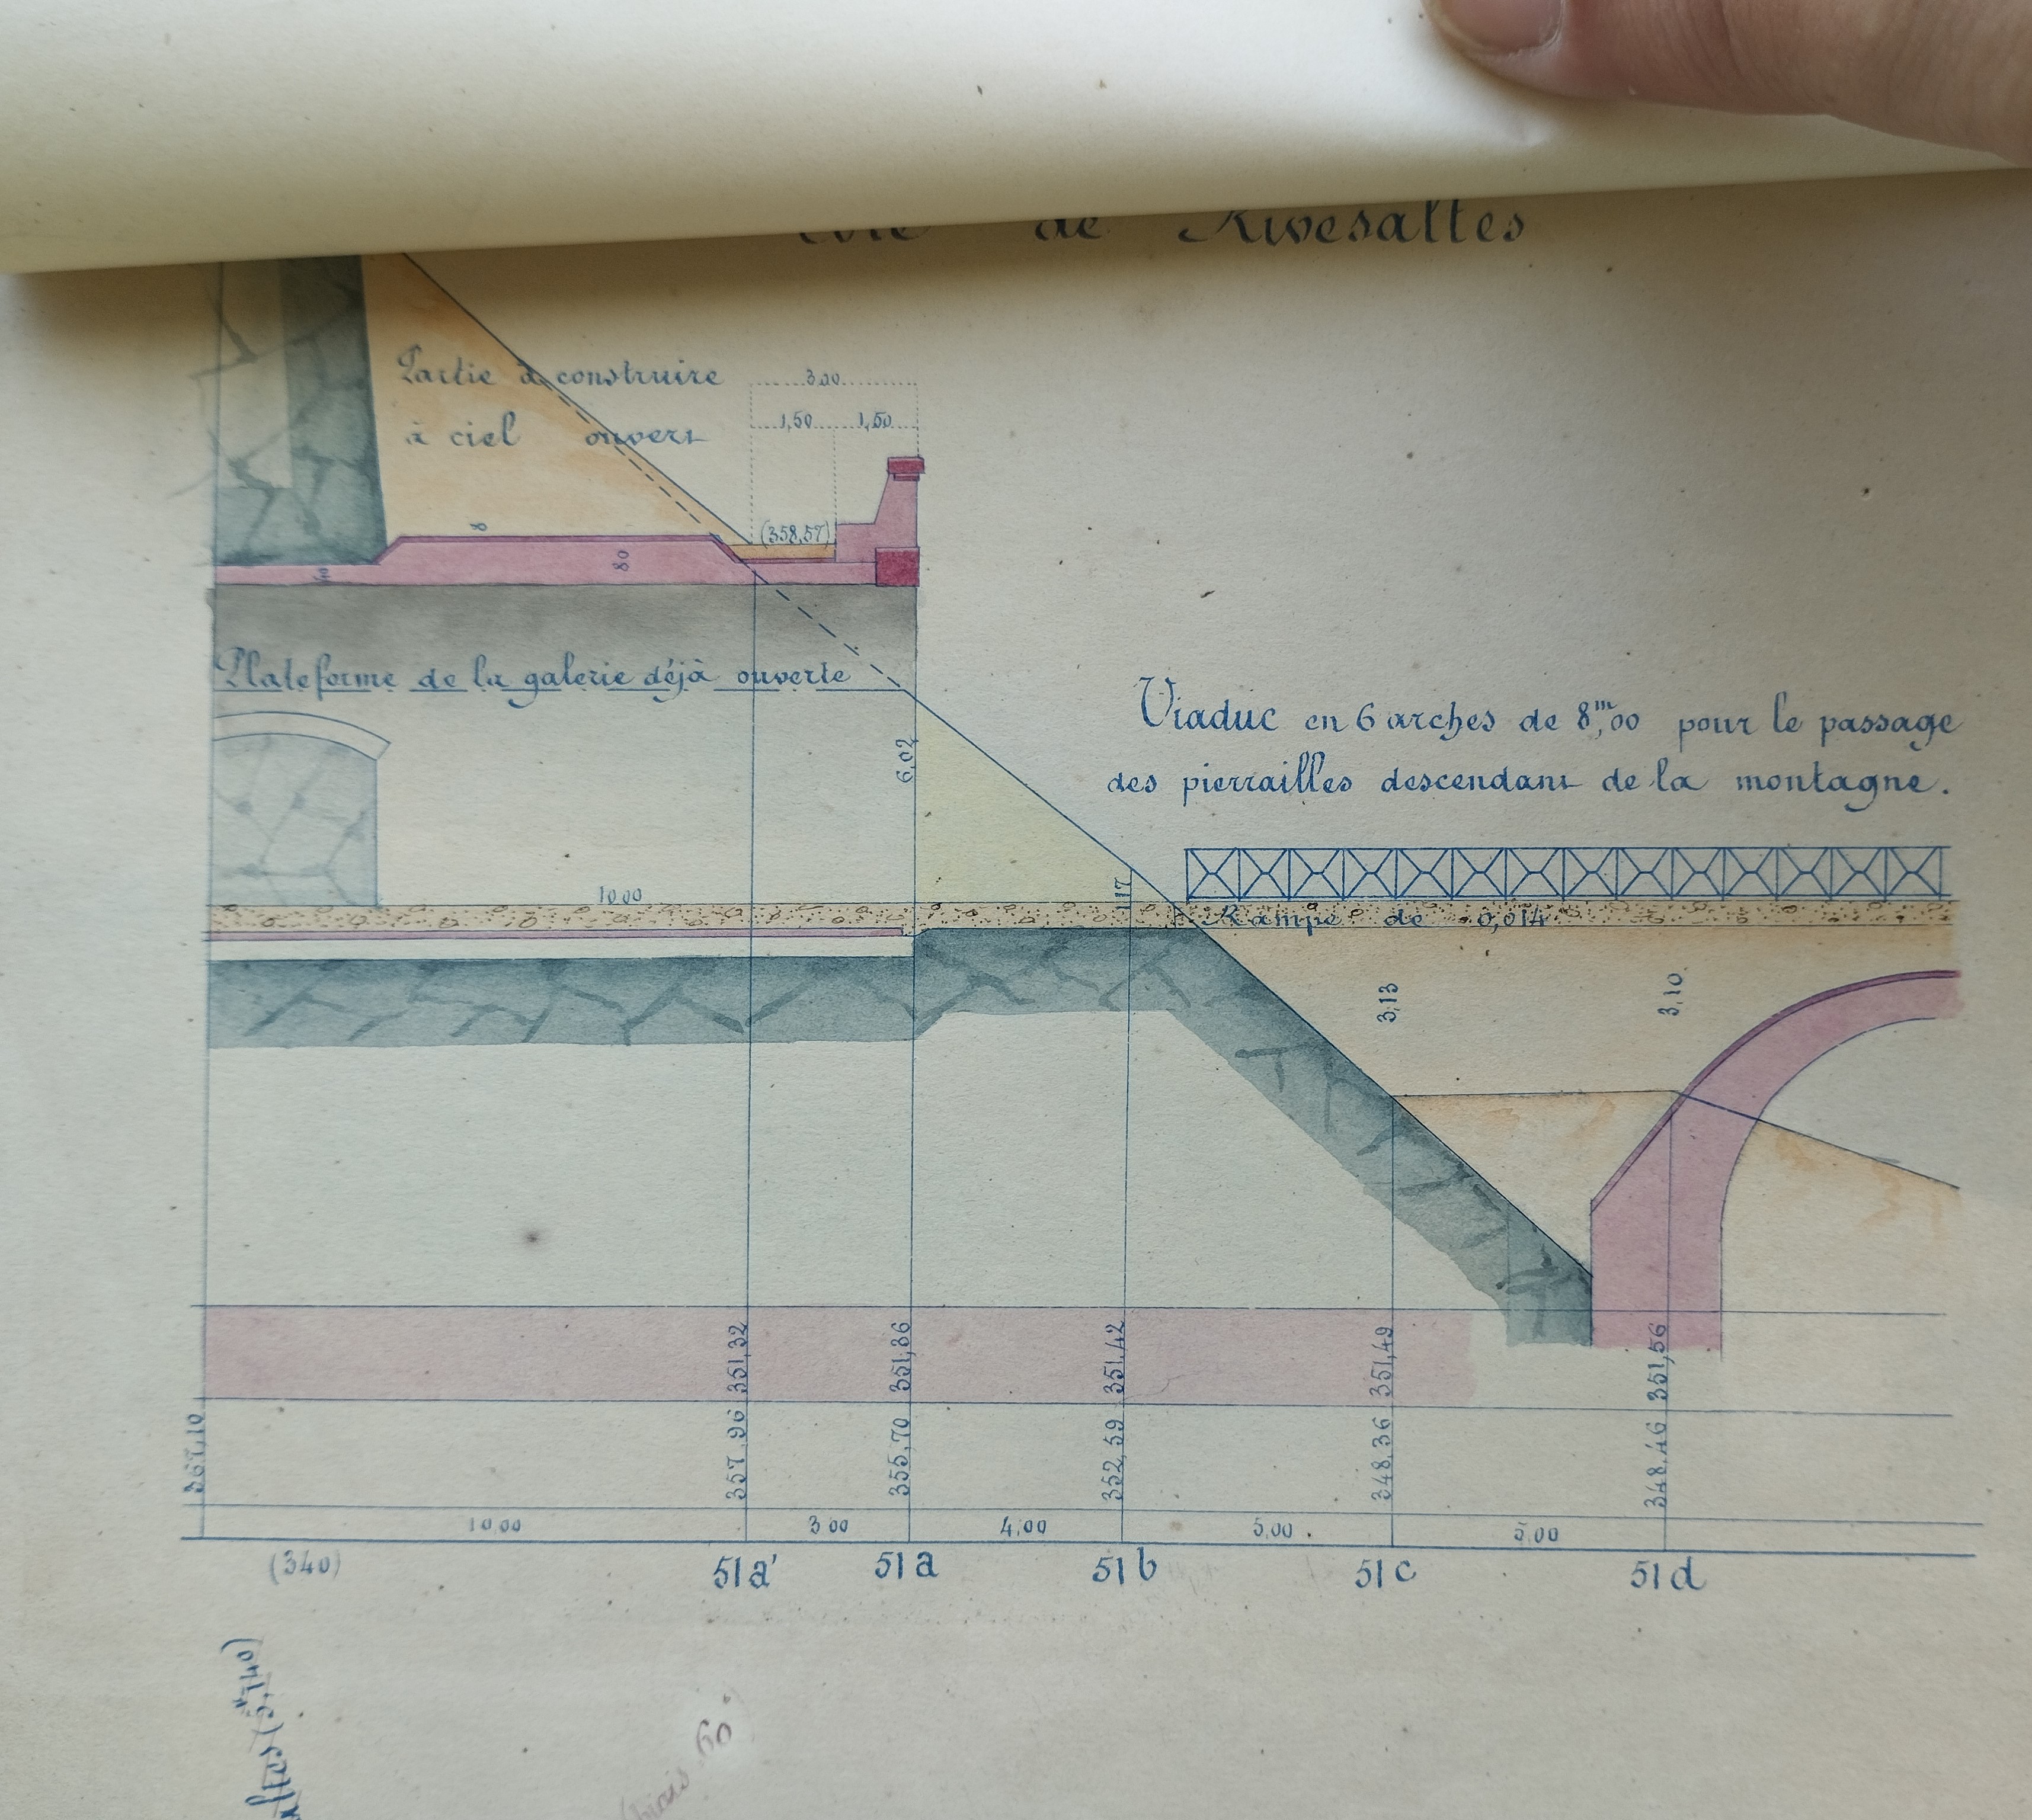 de Rivesaltes
Partie à construire
à ciel ouvert
3,00
1,50 1,50
(358,57)
8
80
40
Plateforme de la galerie déjà ouverte
6,02
Viaduc en 6 arches de 8,m00 pour le passage
des pierrailles descendant de la montagne.
10,00
1,17
Rampe de 0,014
3,13
3,10
351,32
351,36
351,42
351,49
351,56
367,10
357,96
355,70
352,59
348,36
348,46
10,00 3,00 4,00 5,00. 5,00
(340) 51a' 51a 51b 51c 51d
(5,m740)
60°